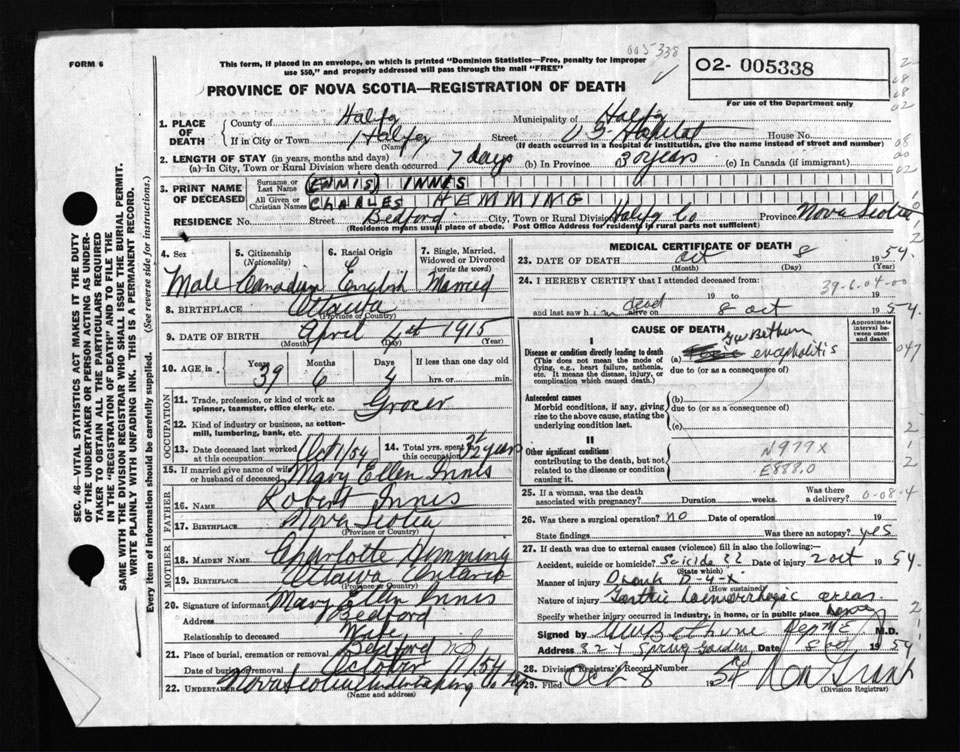 005338
FORM 6
This form, if placed in an envelope, on which is printed "Dominion Statistics—Free, penalty for improper
use $50," and properly addressed will pass through the mail "FREE"
O2- 005338
For use of the Department only
PROVINCE OF NOVA SCOTIA—REGISTRATION OF DEATH
1. PLACE OF DEATH
County of Halifax Municipality of Halifax
If in City or Town Halifax Street House No.
(Name) (If death occurred in a hospital or institution, give the name instead of street and number)
2. LENGTH OF STAY (in years, months and days)
(a)—In City, Town or Rural Division where death occurred 7 days (b) In Province 30 years (c) In Canada (if immigrant)
3. PRINT NAME OF DECEASED
Surname or Last Name (ENNIS) INNES
All Given or Christian Names CHARLES HEMMING
RESIDENCE No. Street Bedford City, Town or Rural Division Halifax Co Province Nova Scotia
(Residence means usual place of abode. Post Office Address for residents in rural parts not sufficient)
4. Sex Male
5. Citizenship (Nationality) Canadian
6. Racial Origin English
7. Single, Married, Widowed or Divorced (write the word) Married
8. BIRTHPLACE Ottawa
(Province or Country)
9. DATE OF BIRTH April 1st 1915
(Month) (Day) (Year)
10. AGE in Years Months Days If less than one day old
39 6 hrs. or min.
OCCUPATION
11. Trade, profession, or kind of work as
spinner, teamster, office clerk, etc. Grocer
12. Kind of industry or business, as cotton-
mill, lumbering, bank, etc.
13. Date deceased last worked at this occupation Oct 1/54
14. Total yrs. spent in this occupation years
15. If married give name of wife
or husband of deceased Mary Ellen Innes
FATHER
16. NAME Robert Innes
17. BIRTHPLACE Nova Scotia
(Province or Country)
MOTHER
18. MAIDEN NAME Charlotte Hemming
19. BIRTHPLACE Ottawa Ontario
(Province or Country)
20. Signature of informant Mary Ellen Innes
Address Bedford
Relationship to deceased Wife
21. Place of burial, cremation or removal Bedford NS
Date of burial or removal October 11/54
22. UNDERTAKER Nova Scotia Undertaking Co Hfx
(Name and address)
MEDICAL CERTIFICATE OF DEATH
23. DATE OF DEATH Oct 8 1954
(Month) (Day) (Year)
24. I HEREBY CERTIFY that I attended deceased from:
39-6-04-00
19 to 19
and last saw him dead alive on 8 oct 1954
CAUSE OF DEATH
Approximate interval between onset and death
I
Disease or condition directly leading to death
(This does not mean the mode of
dying, e.g., heart failure, asthenia,
etc. It means the disease, injury, or
complication which caused death.)
(a) encephalitis
due to (or as a consequence of)
Antecedent causes
Morbid conditions, if any, giving
rise to the above cause, stating the
underlying condition last.
(b)
due to (or as a consequence of)
(c)
II
Other significant conditions
contributing to the death, but not
related to the disease or condition
causing it.
N979X
E888.0
25. If a woman, was the death
associated with pregnancy? Duration weeks. Was there a delivery?
26. Was there a surgical operation? no Date of operation 19
State findings Was there an autopsy? yes
27. If death was due to external causes (violence) fill in also the following:
Accident, suicide or homicide? Suicide ?? Date of injury 2 oct 1954
(State which)
Manner of injury Drank
(How sustained)
Nature of injury Gastric haemorrhagic areas
Specify whether injury occurred in industry, in home, or in public place home
Signed by M.D.
Address 324 Spring Garden, Date 8 oct 1954
28. Division Registrar's Record Number
29. Filed Oct 8 1954
(Division Registrar)
SEC. 46—VITAL STATISTICS ACT MAKES IT THE DUTY
OF THE UNDERTAKER OR PERSON ACTING AS UNDER-
TAKER TO OBTAIN ALL THE PARTICULARS REQUIRED
IN THE "REGISTRATION OF DEATH" AND TO FILE THE
SAME WITH THE DIVISION REGISTRAR WHO SHALL ISSUE THE BURIAL PERMIT.
WRITE PLAINLY WITH UNFADING INK. THIS IS A PERMANENT RECORD.
Every item of information should be carefully supplied. (See reverse side for instructions.)